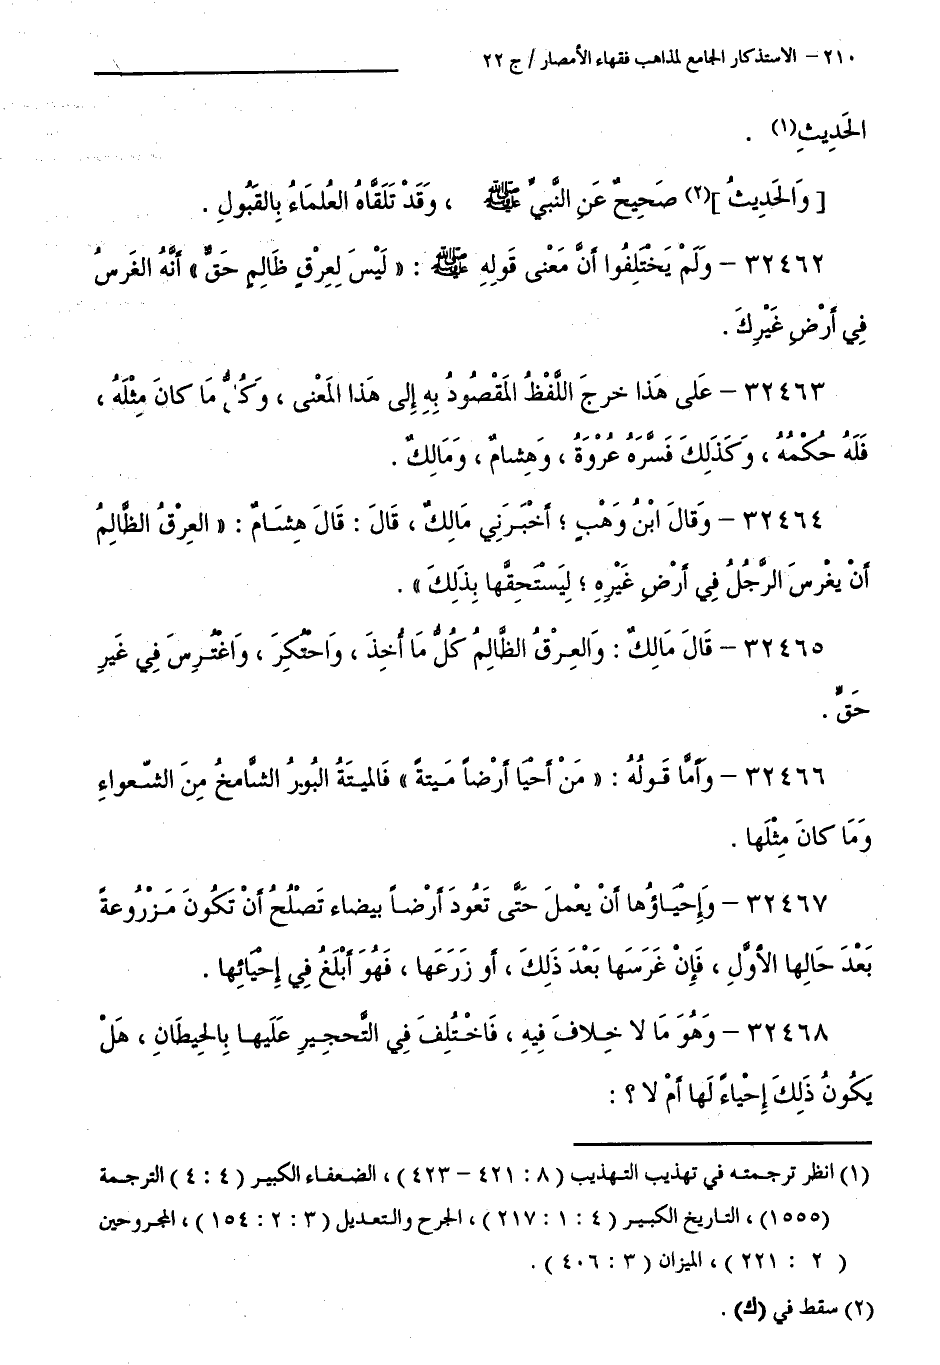 ٢١٠ – الاستذكار الجامع لمذاهب فقهاء الأمصار / ج ٢٢
الحَدِيثِ(١) .
[ وَالحَدِيثُ ](٢) صَحِيحٌ عَنِ النَّبيِّ ﷺ ، وَقَدْ تَلَقَّاهُ العُلمَاءُ بِالقَبُولِ .
٣٢٤٦٢ – وَلَمْ يَخْتَلِفُوا أَنَّ مَعْنى قَولِهِ ﷺ : « لَيْسَ لِعِرْقٍ ظَالِمٍ حَقٌّ » أَنَّهُ الغَرسُ
فِي أَرْضِ غَيْرِكَ .
٣٢٤٦٣ – عَلى هَذا خرجَ اللَّفْظُ المَقْصُودُ بِهِ إِلى هَذا المَعْنى ، وَكُلُّ مَا كانَ مِثْلَهُ ،
فَلَهُ حُكْمُهُ ، وَكَذَلِكَ فَسَّرَهُ عُرْوَةُ ، وَهِشامٌ ، وَمَالِكٌ .
٣٢٤٦٤ – وَقَالَ ابْنُ وَهْبٍ ؛ أَخْبَرَنِي مَالِكٌ ، قَالَ : قَالَ هِشَامٌ : « العِرْقُ الظَّالِمُ
أَنْ يغْرسَ الرَّجُلُ فِي أَرْضِ غَيْرِهِ ؛ لِيَسْتَحِقَّها بِذَلِكَ » .
٣٢٤٦٥ – قَالَ مَالِكٌ : وَالعِرْقُ الظَّالِمُ كُلُّ مَا أُخِذَ ، وَاحْتُكِرَ ، وَاغْتُرِسَ فِي غَيرِ
حَقٍّ .
٣٢٤٦٦ – وَأَمَّا قَولُهُ : « مَنْ أَحْيَا أَرْضاً مَيتةً » فَالميتَةُ البُورُ الشَّامخُ مِنَ الشّعواءِ
وَمَا كانَ مِثْلَها .
٣٢٤٦٧ – وَإِحْيَاؤُها أَنْ يعْملَ حَتَّى تَعُودَ أَرْضاً بيضاء تَصْلُحُ أَنْ تَكُونَ مَزْرُوعةً
بَعْدَ حَالِها الأوَّلِ ، فَإِنْ غَرَسَها بَعْدَ ذَلِكَ ، أو زَرَعَها ، فَهُوَ أَبْلَغُ فِي إِحْيَائِها .
٣٢٤٦٨ – وَهُوَ مَا لا خِلافَ فِيهِ ، فَاخْتُلِفَ فِي التَّحجِيرِ عَلَيها بِالحِيطَانِ ، هَلْ
يَكُونُ ذَلِكَ إِحْياءً لَها أَمْ لا ؟ :
(١) انظر ترجمته في تهذيب التهذيب ( ٨ : ٤٢١ – ٤٢٣ ) ، الضعفاء الكبير ( ٤ : ٤ ) الترجمة
(١٥٥٥) ، التاريخ الكبير ( ٤ : ١ : ٢١٧ ) ، الجرح والتعديل ( ٣ : ٢ : ١٥٤ ) ، المجروحين
( ٢ : ٢٢١ ) ، الميزان ( ٣ : ٤٠٦ ) .
(٢) سقط في (ك) .